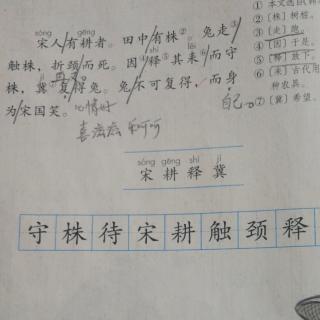 sòng gēng
宋人有耕者。田中有株②。兔走③
触株，折颈而死。因④释⑤其来⑥而守
shì lěi
株，冀⑦复得兔。兔不可复得，而身
jì
为宋国笑。
再次
自己。
心情好
① 本文选自《韩
② 〔株〕树桩。
③ 〔走〕跑。
④ 〔因〕于是。
⑤ 〔释〕放下。
⑥ 〔耒〕古代用
种农具。
⑦ 〔冀〕希望。
sòng gēng shì jì
宋 耕 释 冀
守 株 待 宋 耕 触 颈 释